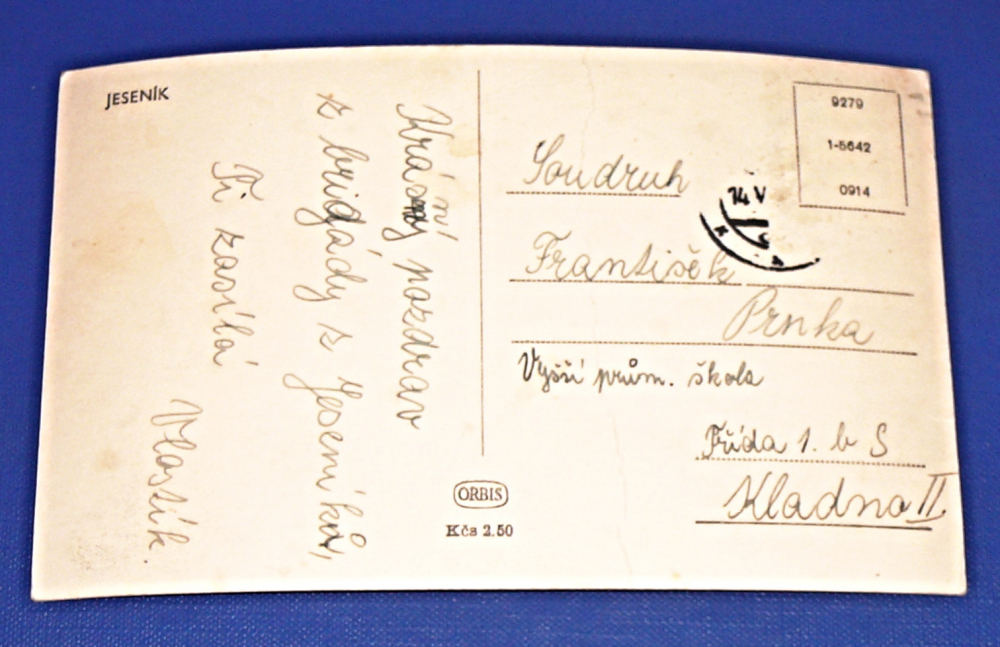 JESENÍK
Krásný pozdrav
z brigády z Jeseníků,
Ti zasílá
Vlastík.
9279
1-5642
0914
14 V
Soudruh
František
Prnka
Vyšší prům. škola
Třída 1. b S
Kladno II
ORBIS
Kčs 2.50